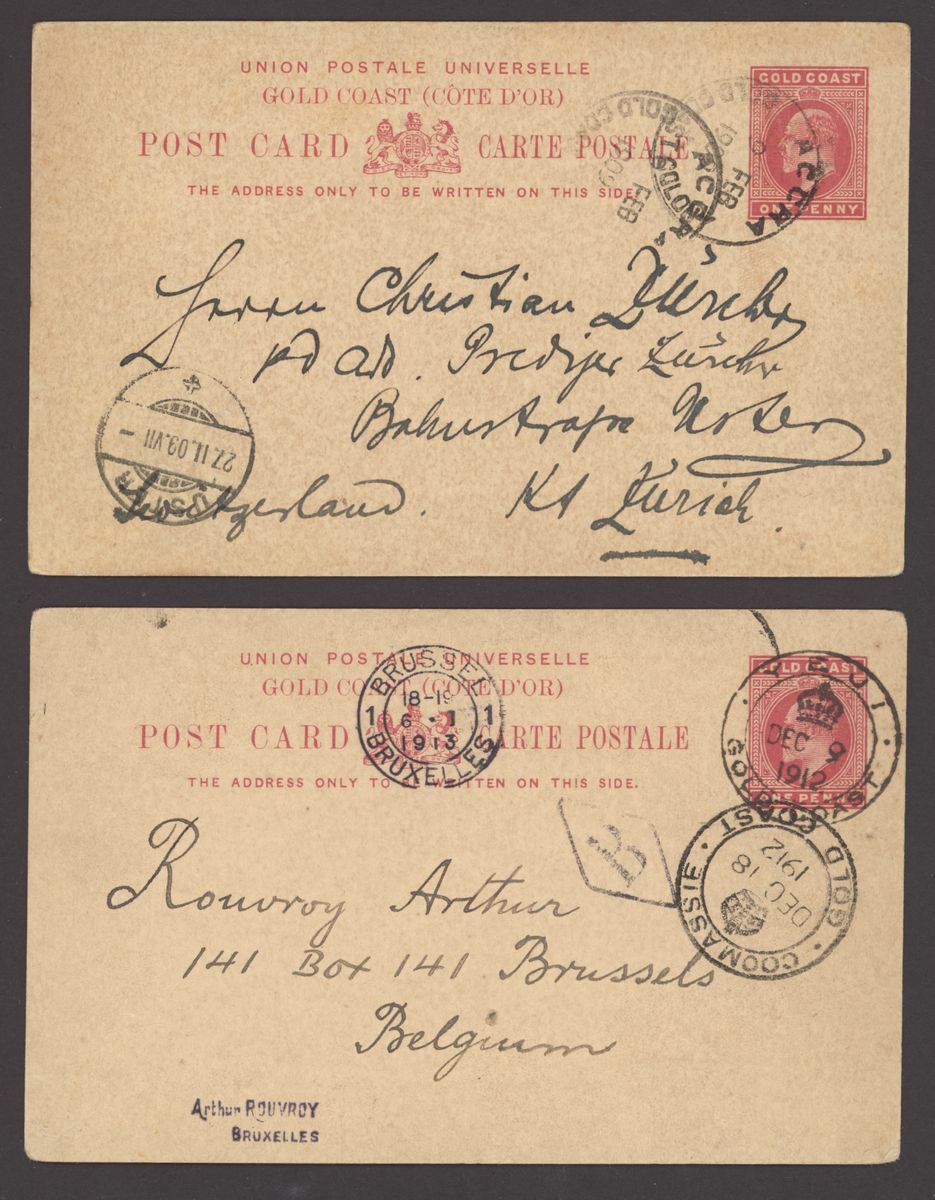 UNION POSTALE UNIVERSELLE
GOLD COAST (CÔTE D'OR)
POST CARD CARTE POSTALE
THE ADDRESS ONLY TO BE WRITTEN ON THIS SIDE.
GOLD COAST
ONE PENNY
ACCRA
FEB
ACCRA
FEB
09
Herrn Christian Zürcher
Prediger Zürcher
Bahnstrasse Uster
Switzerland. Kt Zürich.
27.II.09.VII
UNION POSTALE UNIVERSELLE
GOLD COAST (CÔTE D'OR)
POST CARD CARTE POSTALE
THE ADDRESS ONLY TO BE WRITTEN ON THIS SIDE.
GOLD COAST
ONE PENNY
BRUSSEL
18-19
1 6 · I 1
1913
BRUXELLES
YEJI
DEC 9
1912
GOLD COAST
COOMASSIE
DEC 18
1912
GOLD COAST
B
Rouvroy Arthur
141 Box 141 Brussels
Belgium
Arthur ROUVROY
BRUXELLES